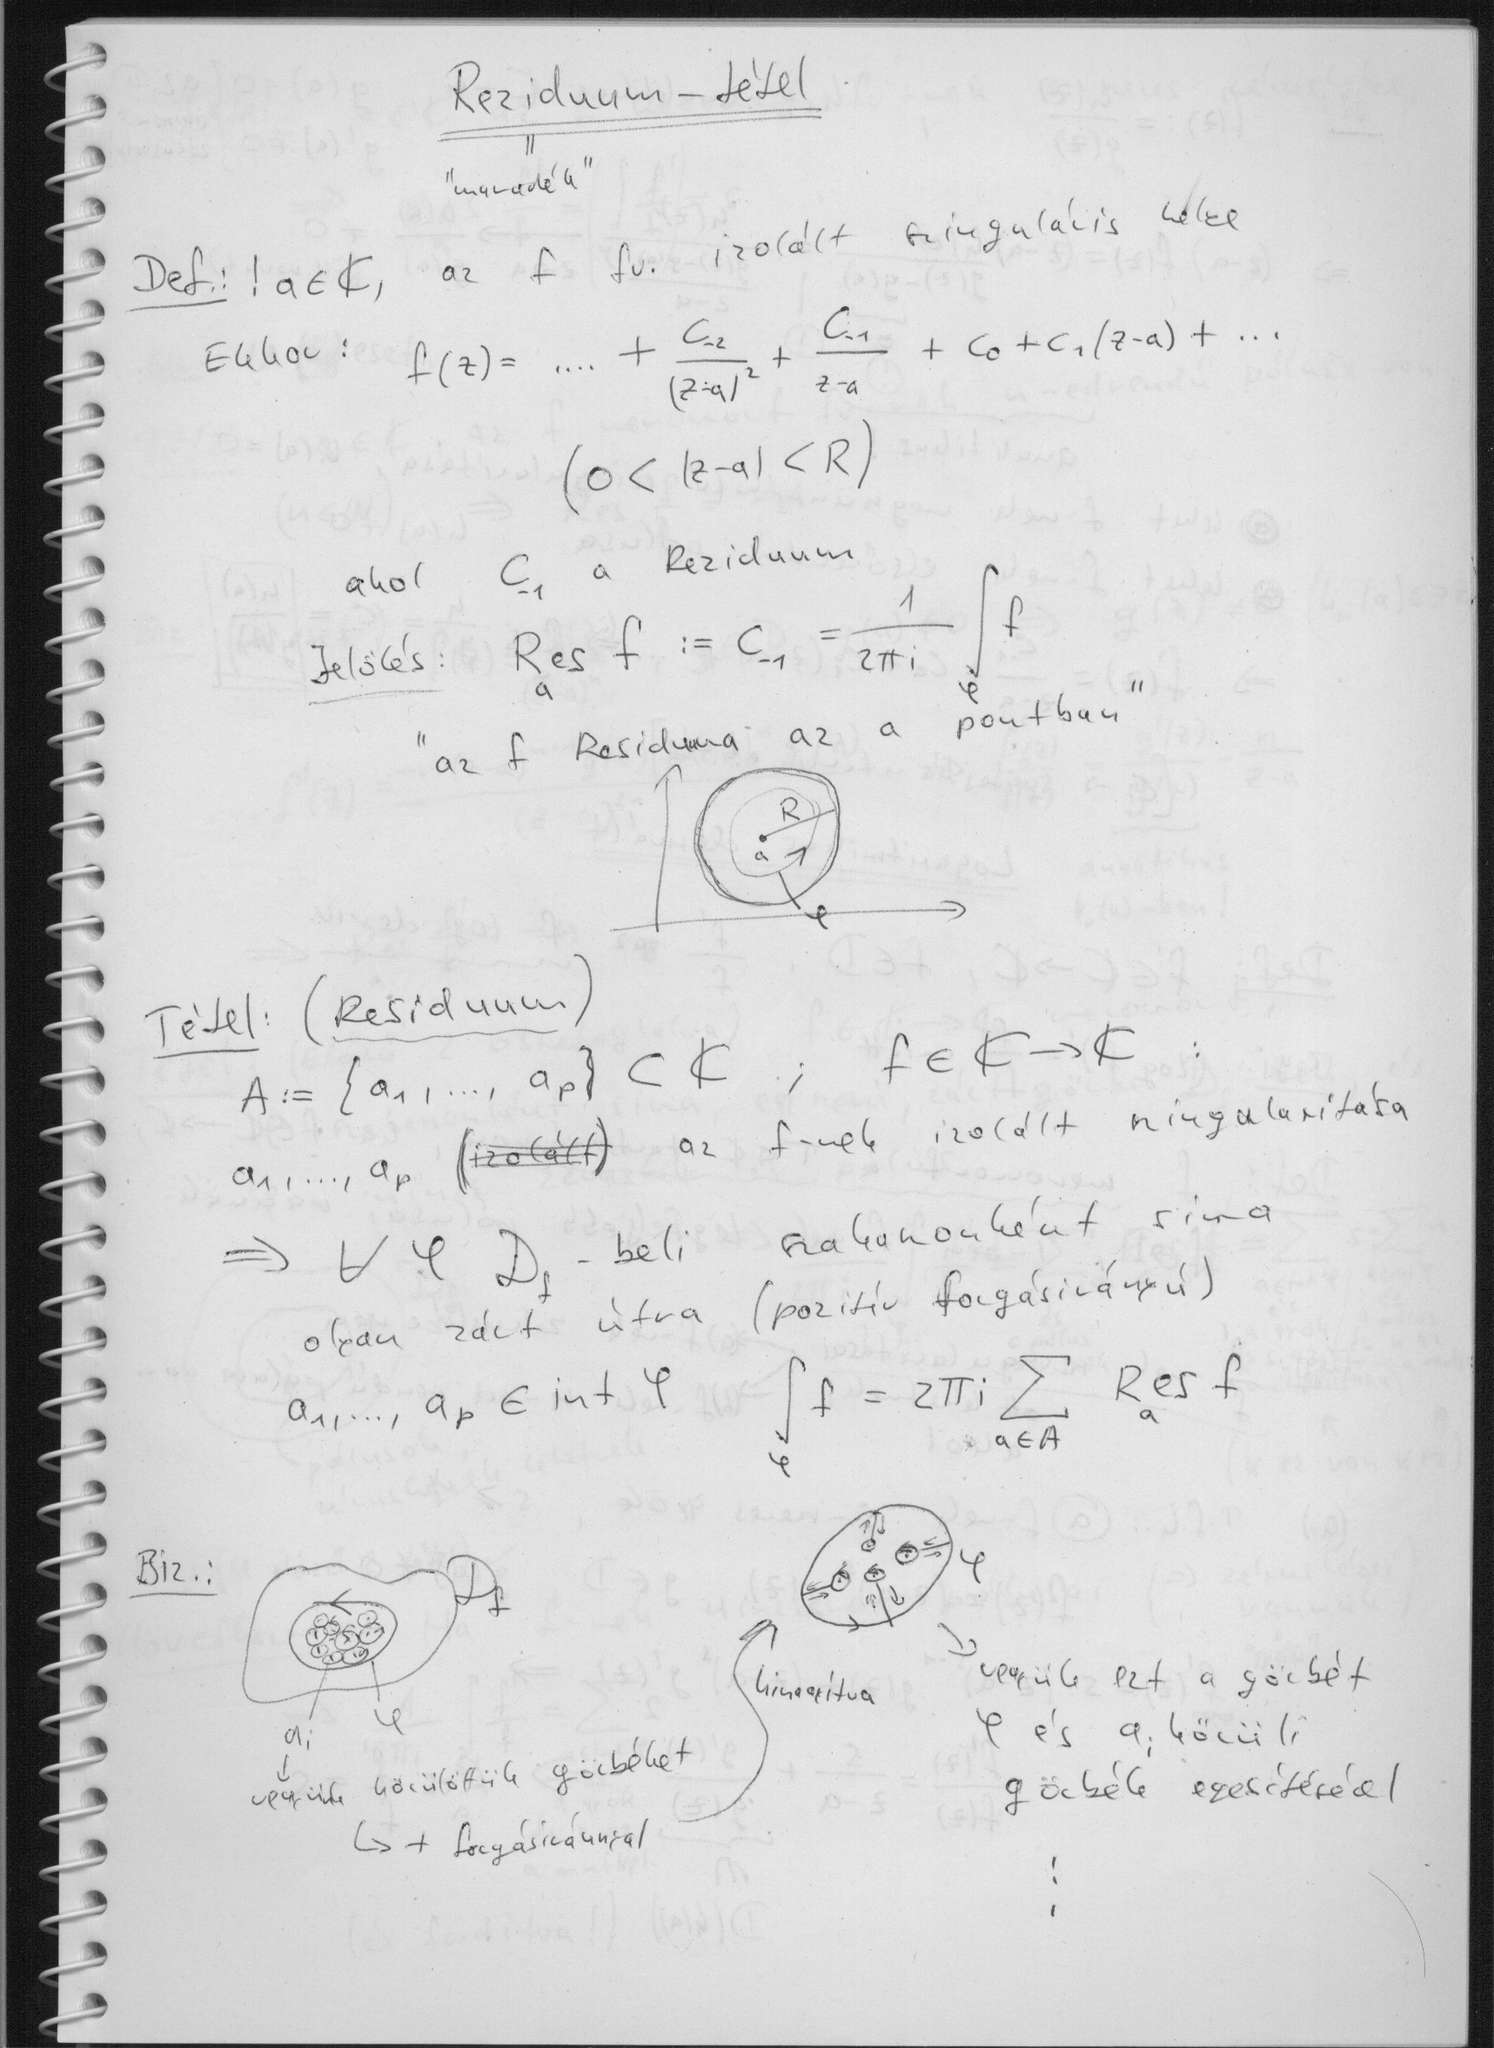 Reziduum-tétel
"
"maradék"
Def.: ! a∈ℂ, az f fv. izolált szinguláris helye
Ekkor: f(z) = .... + C₋₂/(z-a)² + C₋₁/(z-a) + C₀ + C₁(z-a) + ...
(0 < |z-a| < R)
ahol C₋₁ a Reziduum
Jelölés: Res_a f := C₋₁ = 1/(2πi) ∫_φ f
"az f Residuuma az a pontban"
R
a
φ
Tétel: (Residuum)
A := {a₁, ..., aₚ} ⊂ ℂ ; f ∈ ℂ → ℂ :
a₁, ..., aₚ (izolált) az f-nek izolált szingularitása
⇒ ∀ φ D_f-beli szakaszonként sima
olyan zárt útra (pozitív forgásirányú)
a₁, ..., aₚ ∈ int φ ∫_φ f = 2πi ∑_{a∈A} Res_a f
Biz.:
D_f
φ
aᵢ
φ
vegyünk körülöttük görbéket
↳ + forgásiránnyal
kinagyítva
vegyük ezt a görbét
φ és aᵢ körüli
görbék egyesítésével
⋮